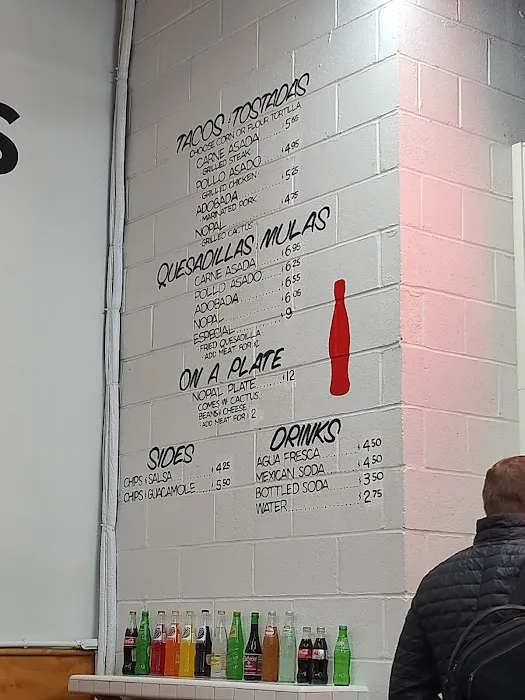 S
TACOS & TOSTADAS
CHOOSE CORN OR FLOUR TORTILLA
CARNE ASADA $5
GRILLED STEAK
POLLO ASADO $4.95
GRILLED CHICKEN
ADOBADA $5.25
MARINATED PORK
NOPAL $4.75
GRILLED CACTUS
QUESADILLAS MULAS
CARNE ASADA $6.95
POLLO ASADO $6.25
ADOBADA $6.55
NOPAL $6.05
ESPECIAL $9
FRIED QUESADILLA
ADD MEAT FOR $2
ON A PLATE
NOPAL PLATE $12
COMES W/ CACTUS,
BEANS & CHEESE
ADD MEAT FOR $2
SIDES
CHIPS & SALSA $4.25
CHIPS & GUACAMOLE $5.50
DRINKS
AGUA FRESCA $4.50
MEXICAN SODA $4.50
BOTTLED SODA $3.50
WATER $2.75